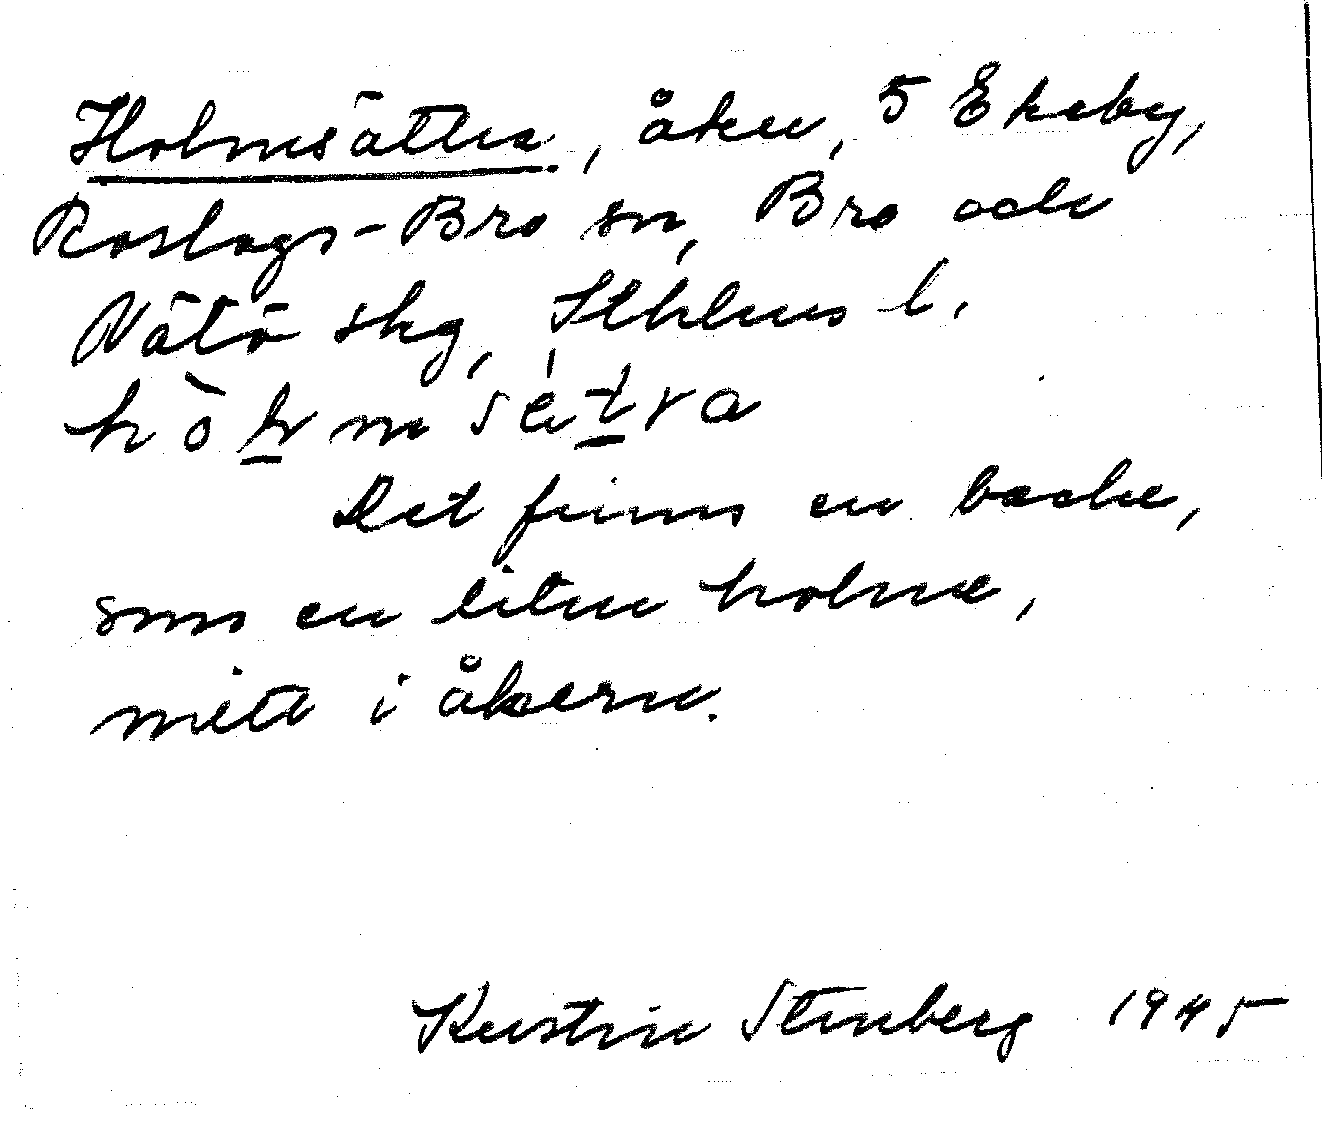 Holmsättra, åker, 5 Ekeby,
Roslags-Bro sn, Bro och
Vätö skg, Sthlms l.
Det finns en backe,
som en liten holme,
mitt i åkern.
Kerstin Stenberg 1945